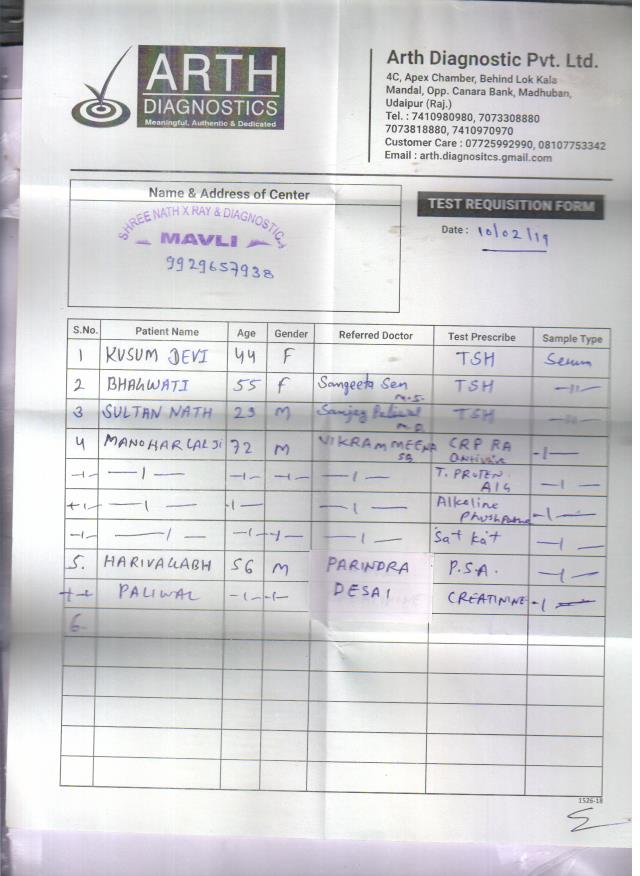 ARTH
DIAGNOSTICS
Meaningful, Authentic & Dedicated
Arth Diagnostic Pvt. Ltd.
4C, Apex Chamber, Behind Lok Kala
Mandal, Opp. Canara Bank, Madhuban,
Udaipur (Raj.)
Tel. : 7410980980, 7073308880
7073818880, 7410970970
Customer Care : 07725992990, 08107753342
Email : arth.diagnositcs.gmail.com
Name & Address of Center
SHREE NATH X RAY & DIAGNOSTIC
MAVLI
9929657938
TEST REQUISITION FORM
Date : 10/02/19
S.No. Patient Name Age Gender Referred Doctor Test Prescribe Sample Type
1 KUSUM DEVI 44 F TSH Serum
2 BHAGWATI 55 F Sangeeta Sen M.S. TSH -11-
3 SULTAN NATH 23 M TSH -11-
4 MANOHARLALJI 72 M VIKRAM MEENA CRP RA -1-
-1- -1- -1- -1- -1- T. PROTEN. A/G -1-
+1- -1- -1- -1- Alkaline -1-
-1- -1- -1- -1- -1- -1-
5. HARIVALLABH 56 M PARINDRA P.S.A. -1-
PALIWAL -1- -1- DESAI CREATININE -1-
6.
1526-18